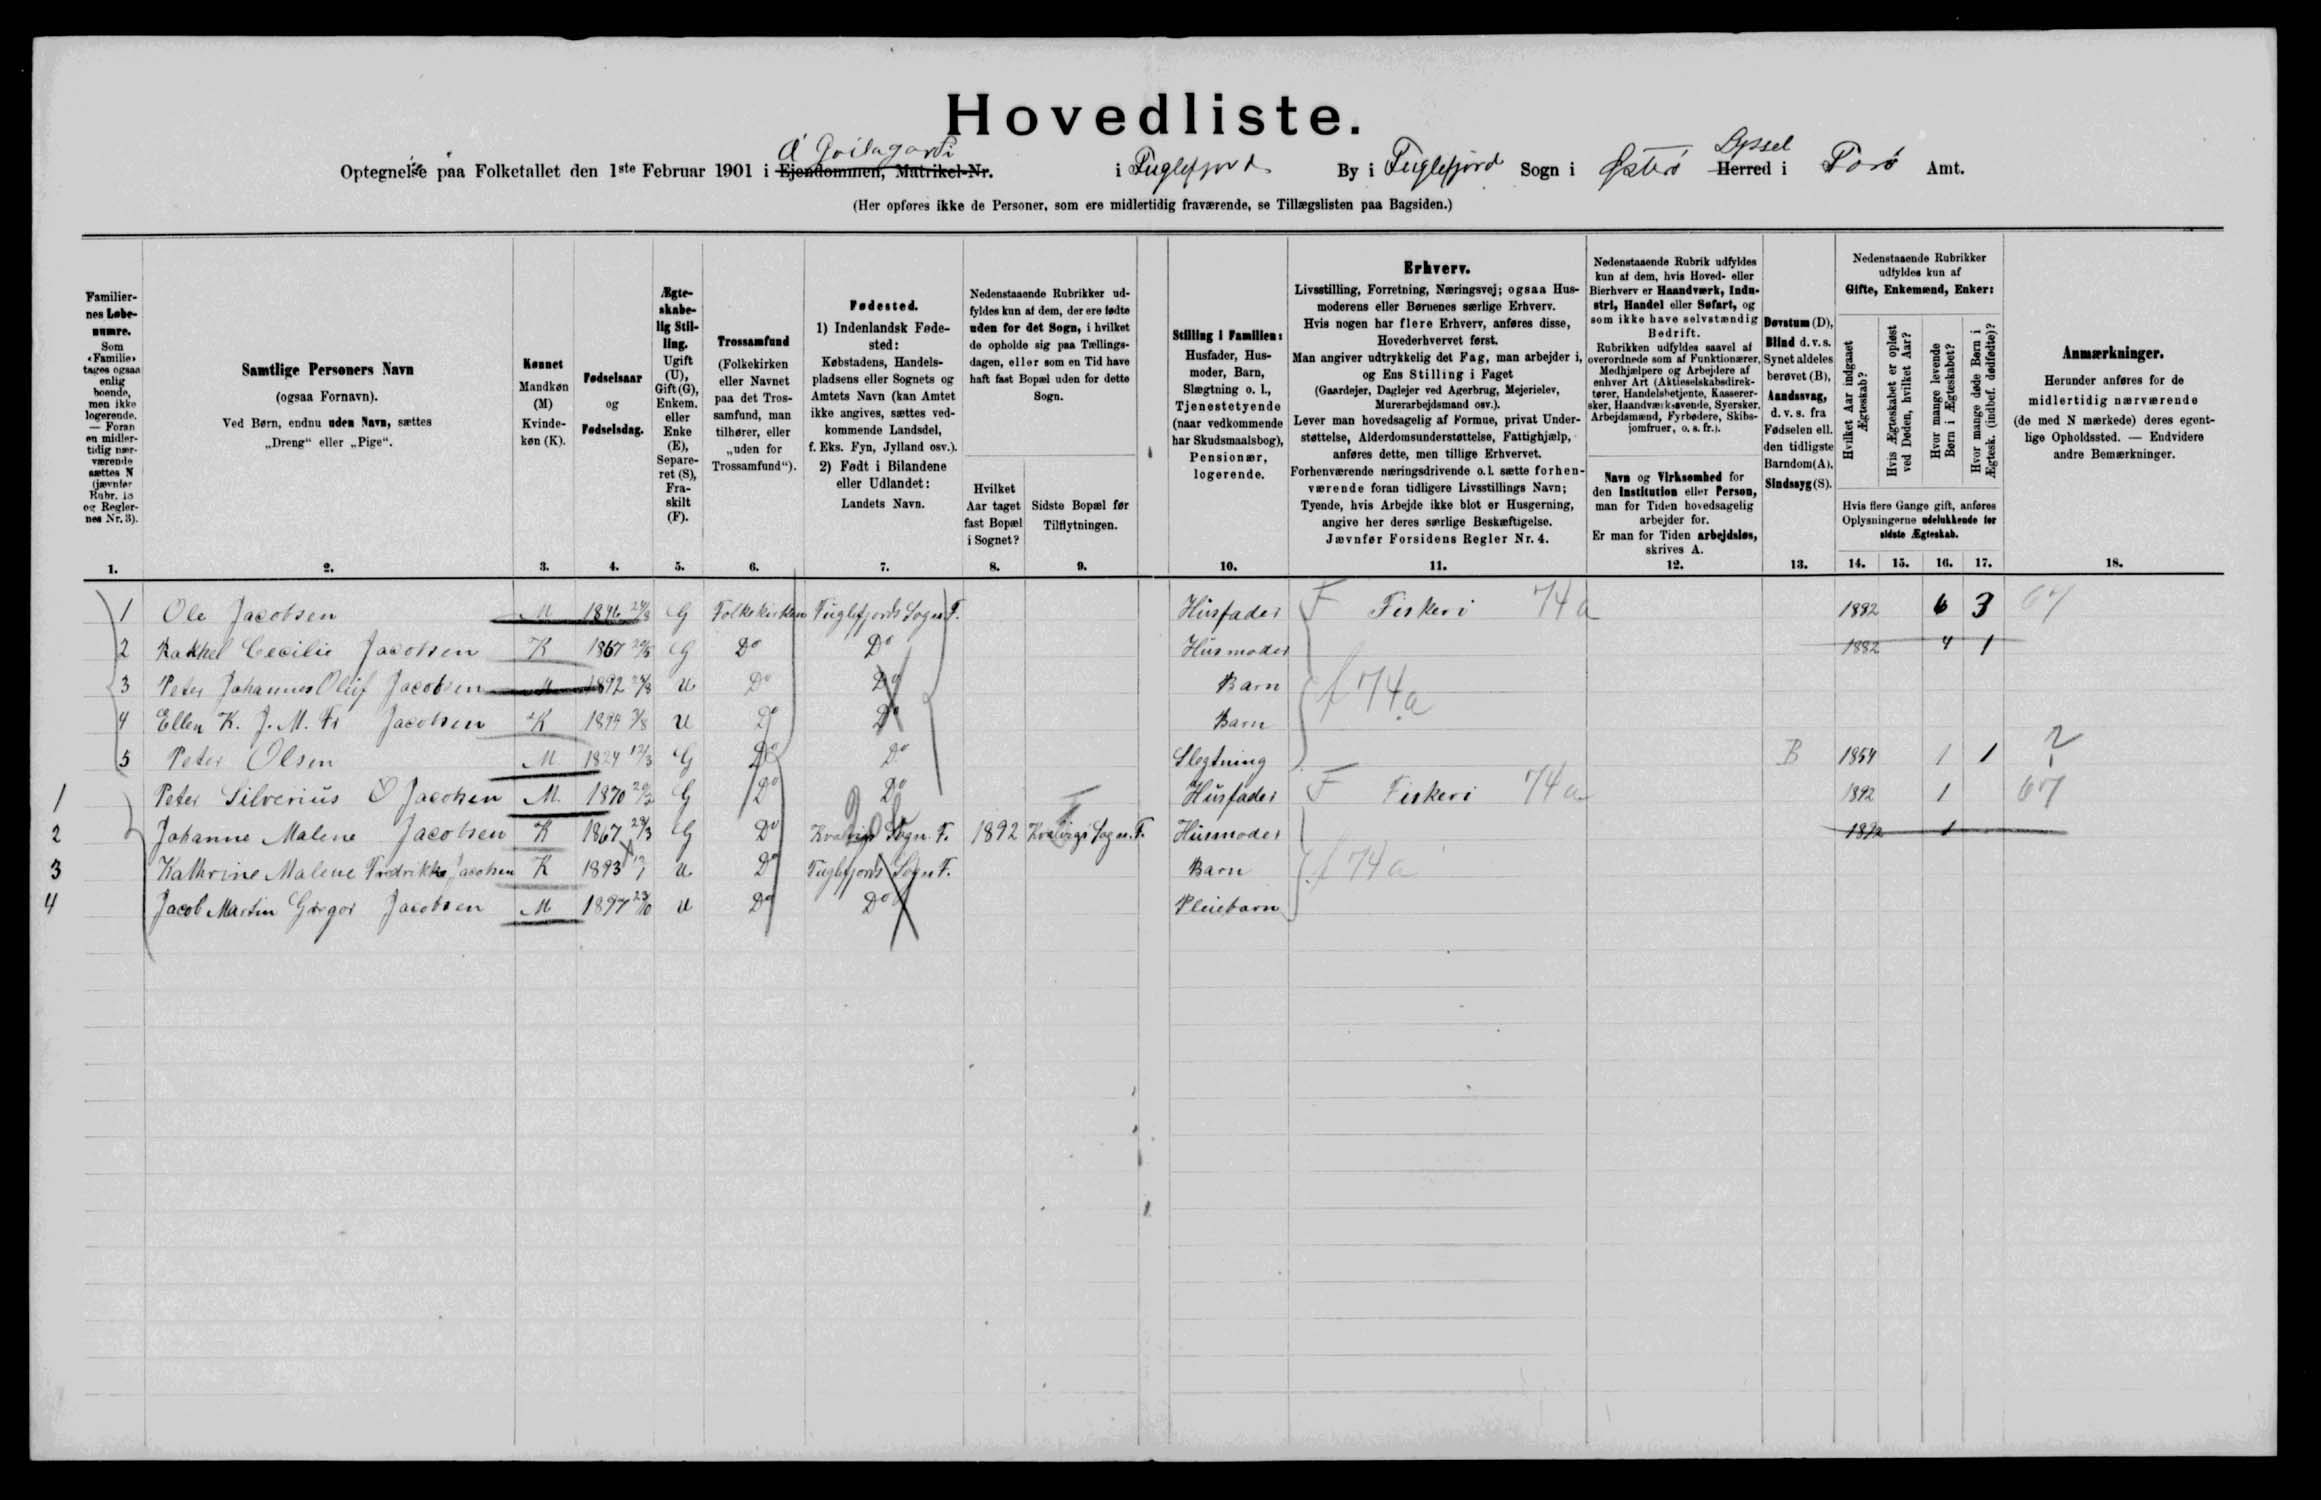 Hovedliste.
Optegnelse paa Folketallet den 1ste Februar 1901 i Ejendommen, Matrikel-Nr. i Fuglefjord By i Fuglefjord Sogn i Østerø Syssel Herred i Færø Amt.
(Her opføres ikke de Personer, som ere midlertidig fraværende, se Tillægslisten paa Bagsiden.)
Familier-
nes Løbe-
numre.
Som
«Familie»
tages ogsaa
enlig
boende,
men ikke
logerende.
— Foran
en midler-
tidig nær-
værende
sættes N
(jævnfør
Rubr. 18
og Regler-
nes Nr. 3).
1.
Samtlige Personers Navn
(ogsaa Fornavn).
Ved Børn, endnu uden Navn, sættes
„Dreng“ eller „Pige“.
2.
Kønnet
Mandkøn
(M)
Kvinde-
køn (K).
3.
Fødselsaar
og
Fødselsdag.
4.
Ægte-
skabe-
lig Stil-
ling.
Ugift
(U),
Gift (G),
Enkem.
eller
Enke
(E),
Separe-
ret (S),
Fra-
skilt
(F).
5.
Trossamfund
(Folkekirken
eller Navnet
paa det Tros-
samfund, man
tilhører, eller
„uden for
Trossamfund“).
6.
Fødested.
1) Indenlandsk Føde-
sted:
Købstadens, Handels-
pladsens eller Sognets og
Amtets Navn (kan Amtet
ikke angives, sættes ved-
kommende Landsdel,
f. Eks. Fyn, Jylland osv.).
2) Født i Bilandene
eller Udlandet:
Landets Navn.
7.
Nedenstaaende Rubrikker ud-
fyldes kun af dem, der ere fødte
uden for det Sogn, i hvilket
de opholde sig paa Tællings-
dagen, eller som en Tid have
haft fast Bopæl uden for dette
Sogn.
Hvilket
Aar taget
fast Bopæl
i Sognet?
8.
Sidste Bopæl før
Tilflytningen.
9.
Stilling i Familien:
Husfader, Hus-
moder, Barn,
Slægtning o. l.,
Tjenestetyende
(naar vedkommende
har Skudsmaalsbog),
Pensionær,
logerende.
10.
Erhverv.
Livsstilling, Forretning, Næringsvej; ogsaa Hus-
moderens eller Børnenes særlige Erhverv.
Hvis nogen har flere Erhverv, anføres disse,
Hovederhvervet først.
Man angiver udtrykkelig det Fag, man arbejder i,
og Ens Stilling i Faget
(Gaardejer, Daglejer ved Agerbrug, Mejerielev,
Murerarbejdsmand osv.).
Lever man hovedsagelig af Formue, privat Under-
støttelse, Alderdomsunderstøttelse, Fattighjælp,
anføres dette, men tillige Erhvervet.
Forhenværende næringsdrivende o. l. sætte forhen-
værende foran tidligere Livsstillings Navn;
Tyende, hvis Arbejde ikke blot er Husgerning,
angive her deres særlige Beskæftigelse.
Jævnfør Forsidens Regler Nr. 4.
11.
Nedenstaaende Rubrik udfyldes
kun af dem, hvis Hoved- eller
Bierhverv er Haandværk, Indu-
stri, Handel eller Søfart, og
som ikke have selvstændig
Bedrift.
Rubrikken udfyldes saavel af
overordnede som af Funktionærer,
Medhjælpere og Arbejdere af
enhver Art (Aktieselskabsdirek-
tører, Handelsbetjente, Kasserer-
sker, Haandværksvende, Syersker,
Arbejdsmænd, Fyrbødere, Skibs-
jomfruer, o. s. fr.).
Navn og Virksomhed for
den Institution eller Person,
man for Tiden hovedsagelig
arbejder for.
Er man for Tiden arbejdsløs,
skrives A.
12.
Døvstum (D),
Blind d. v. s.
Synet aldeles
berøvet (B),
Aandssvag,
d. v. s. fra
Fødselen ell.
den tidligste
Barndom (A),
Sindssyg (S).
13.
Nedenstaaende Rubrikker
udfyldes kun af
Gifte, Enkemænd, Enker:
Hvilket Aar indgaaet
Ægteskab?
Hvis Ægteskabet er opløst
ved Døden, hvilket Aar?
Hvor mange levende
Børn i Ægteskabet?
Hvor mange døde Børn i
Ægtesk. (indbef. dødfødte)?
Hvis flere Gange gift, anføres
Oplysningerne udelukkende for
sidste Ægteskab.
14. 15. 16. 17.
Anmærkninger.
Herunder anføres for de
midlertidig nærværende
(de med N mærkede) deres egent-
lige Opholdssted. — Endvidere
andre Bemærkninger.
18.
1 Ole Jacobsen M G Folkekirken Fuglefjords Sogn F. Husfader F Fiskeri 74 a 1882 6 3 67
2 Rakhel Cecilie Jacobsen K 1867 G Do Do Husmoder 1882 4 1
3 Peter Johannes Oluf Jacobsen M 1892 U Do Do Barn f 74 a
4 Ellen K. J. M. Fr Jacobsen K 1894 U Do Do Barn
5 Peter Olsen M 1824 12/3 G Do Do Slegtning B 1854 1 1 2
1 Peter Silverius O Jacobsen M. 1870 G Do Do Husfader F Fiskeri 74 a 1892 1 67
2 Johanne Malene Jacobsen K 1867 G Do Kvalvigs Sogn F. 1892 Kvalvigs Sogn. F. Husmoder 1892 1
3 Kathrine Malene Fredrikke Jacobsen K 1893 U Do Fuglefjords Sogn F. Barn f 74 a
4 Jacob Martin Gregor Jacobsen M 1897 U Do Do Pleiebarn